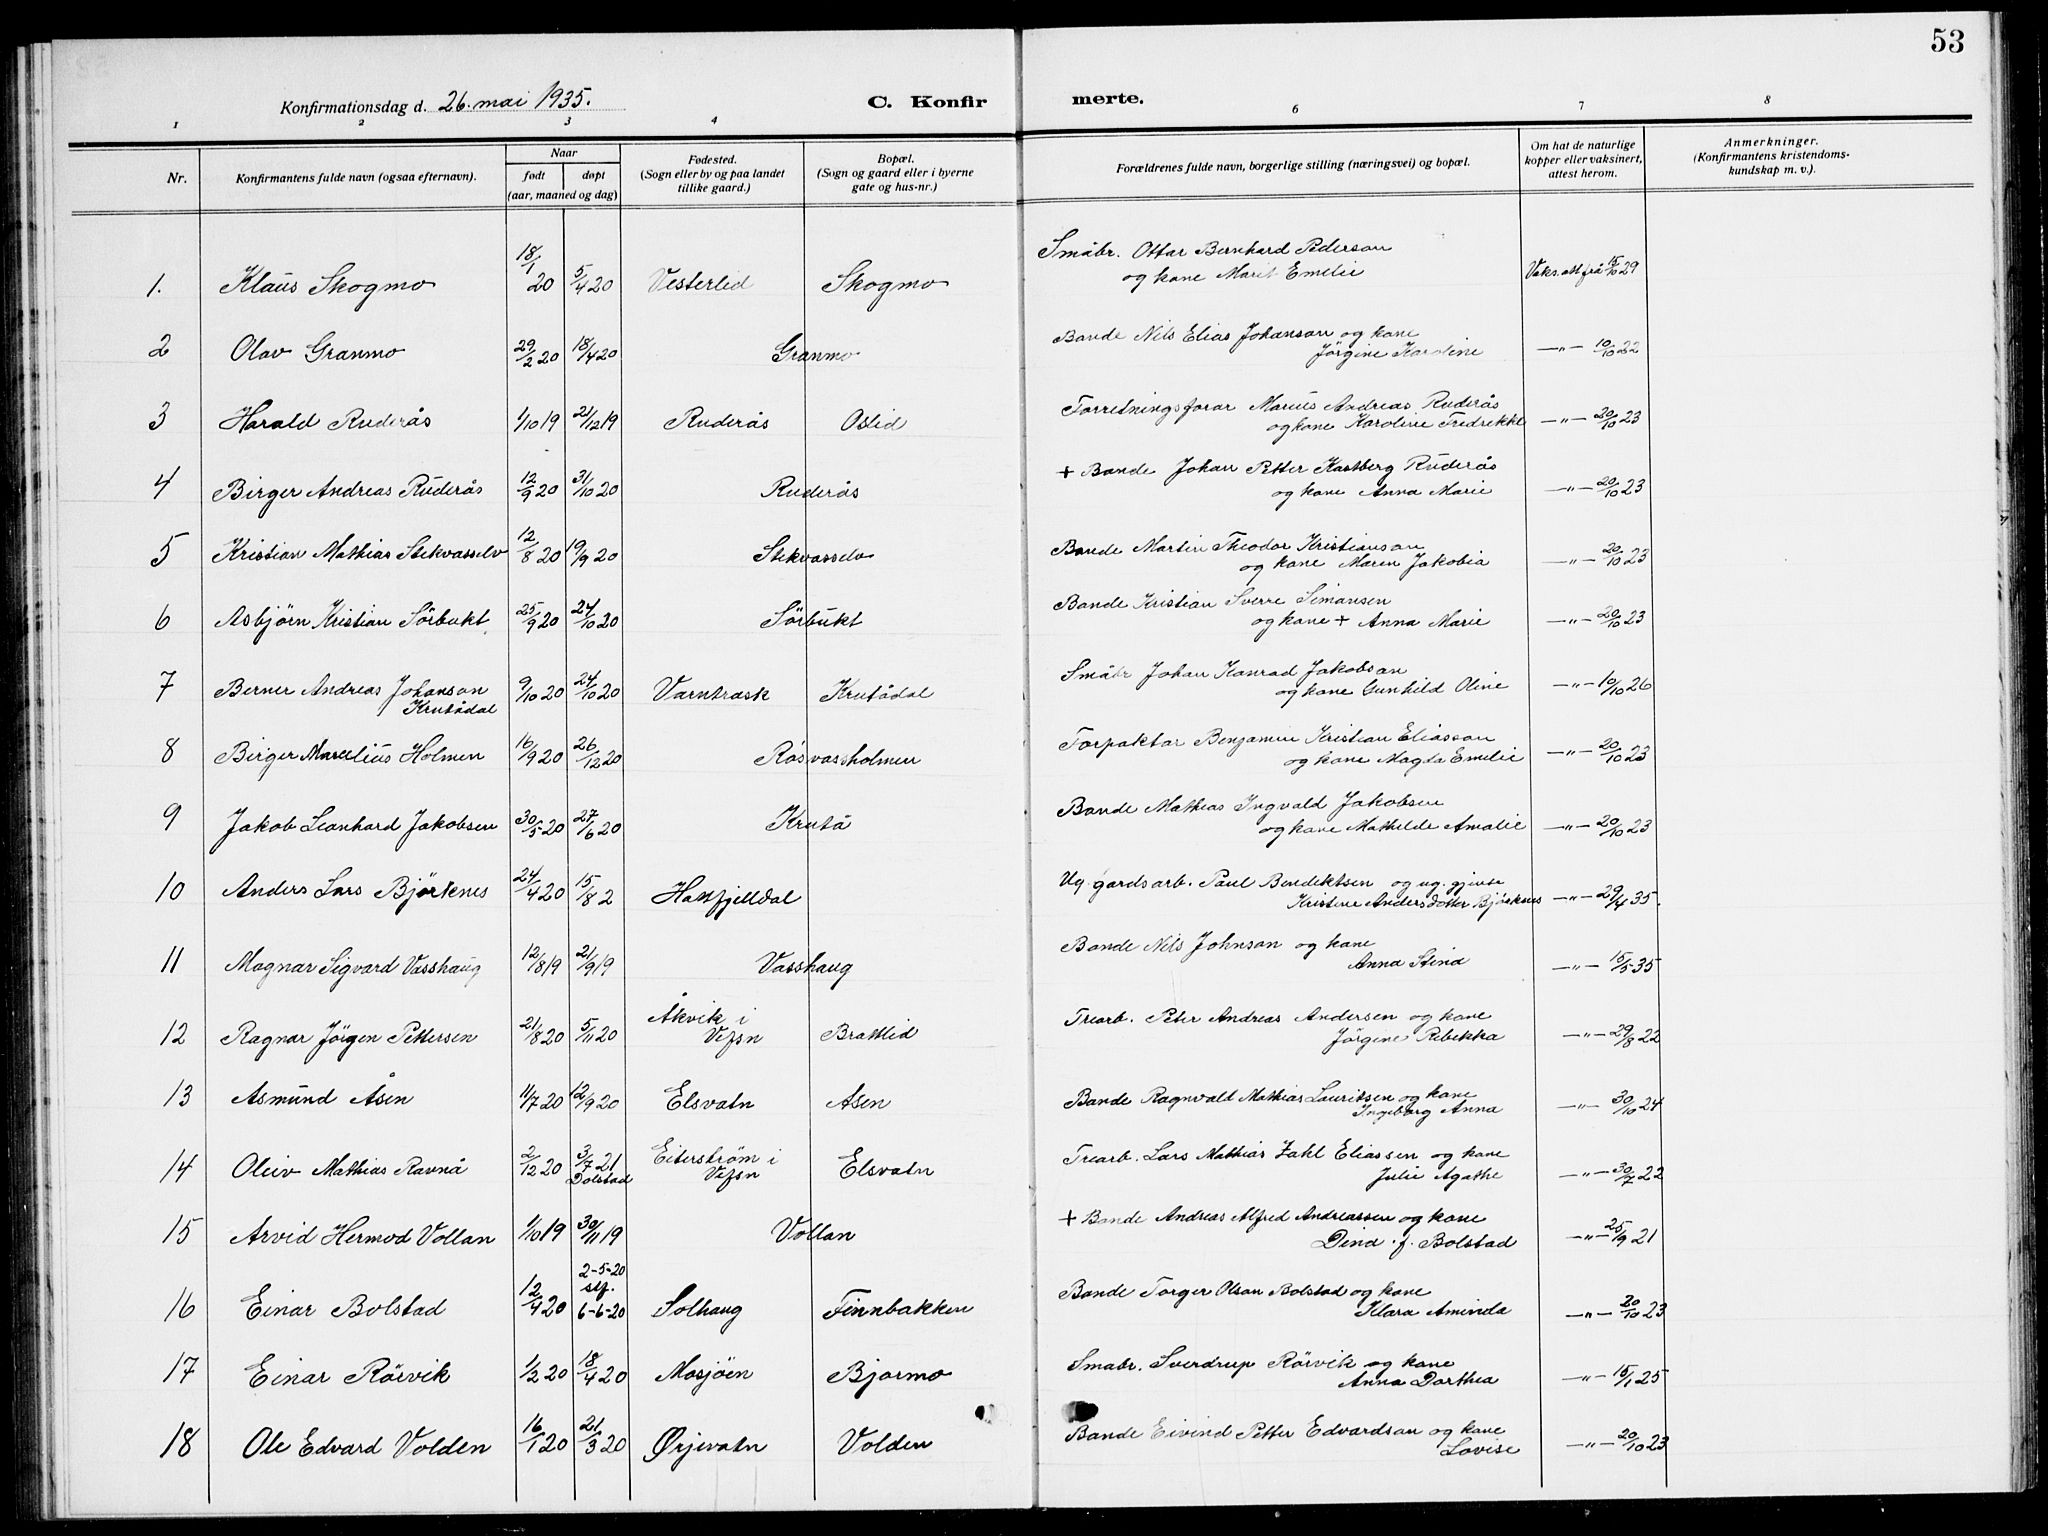 53
Konfirmationsdag d. 26. mai 1935. C. Konfir merte.
1 2 3 4 6 7 8
Nr. Konfirmantens fulde navn (ogsaa efternavn). Naar født døpt (aar, maaned og dag) Fødested. (Sogn eller by og paa landet tillike gaard.) Bopæl. (Sogn og gaard eller i byerne gate og hus-nr.) Forældrenes fulde navn, borgerlige stilling (næringsvei) og bopæl. Om hat de naturlige kopper eller vaksinert, attest herom. Anmerkninger. (Konfirmantens kristendomskundskap m. v.).
1. Klaus Skogmo 18/1 20 5/4 20 Vesterlid Skogmo Småbr. Ottar Bernhard Pederson og kone Marit Emelie Vaks. att frå 15/10 29
2 Olav Granmo 29/2 20 18/4 20 Granmo Bonde Nils Elias Johanson og kone Jørgine Karoline —"— 10/10 22
3 Harald Ruderås 1/10 19 21/12 19 Ruderås Oslid Forretningsforar Marius Andreas Ruderås og kone Karoline Fredrikke —"— 20/10 23
4 Birger Andreas Ruderås 12/9 20 31/10 20 Ruderås + Bonde Johan Petter Kastberg Ruderås og kone Anna Marie —"— 20/10 23
5 Kristian Mathias Stekvasselv 12/8 20 19/9 20 Stekvasselv Bonde Martin Theodor Kristianson og kone Maren Jakobia —"— 20/10 23
6 Asbjørn Kristian Sörbukt 25/9 20 24/10 20 Sörbukt Bonde Kristian Sverre Simonsen og kone + Anna Marie —"— 20/10 23
7 Berner Andreas Johanson Krutådal 9/10 20 24/10 20 Varntræsk Krutådal Småbr Johan Konrad Jakobson og kone Gunhild Oline —"— 10/10 26
8 Birger Marcelius Holmen 16/9 20 26/12 20 Rösvassholmen Forpaktar Benjamin Kristian Eliasson og kone Magda Emelie —"— 20/10 23
9 Jakob Leonhard Jakobsen 30/5 20 27/6 20 Krutå Bonde Mathias Ingvald Jakobsen og kone Mathilde Amalie —"— 20/10 23
10 Anders Lars Björknes 24/4 20 15/8 2 Hattfjelldal Ug. gardsarb. Paul Bendiktsen og ug. gjente Kristine Andersdotter Björknes —"— 29/4 35.
11 Magnar Sigvard Vasshaug 12/8 19 21/9 19 Vasshaug Bonde Nils Johnson og kone Anna Stina —"— 15/5 35
12 Ragnar Jörgen Pettersen 21/8 20 5/11 20 Åkvik i Vefsn Brattlid Trearb. Peter Andreas Andersen og kone Jörgine Rebekka —"— 29/8 22
13 Asmund Åsen 11/7 20 12/9 20 Elsvatn Åsen Bonde Ragnvalt Mathias Lauritsen og kone Ingeborg Anna —"— 30/10 24
14 Oleiv Mathias Ravnå 2/12 20 3/7 21 Dolstad Eiterström i Vefsn Elsvatn Trearb. Lars Mathias Zahl Eliassen og kone Julie Agathe —"— 30/7 22
15 Arvid Hermod Vollan 1/10 19 30/11 19 Vollan + Bonde Andreas Alfred Andreassen og kone Dina f. Bolstad —"— 25/9 21
16 Einar Bolstad 12/4 20 2-5-20 stf. 6-6-20 Solhaug Finnbakken Bonde Torger Olson Bolstad og kone Klara Aminda —"— 20/10 23
17 Einar Rörvik 1/2 20 18/4 20 Mosjöen Bjormo Småbr. Sverdrup Rörvik og kone Anna Dorthea —"— 15/1 25
18 Ole Edvard Volden 16/1 20 21/3 20 Ørjevatn Volden Bonde Eivind Petter Edvardson og kone Lovise —"— 20/10 23